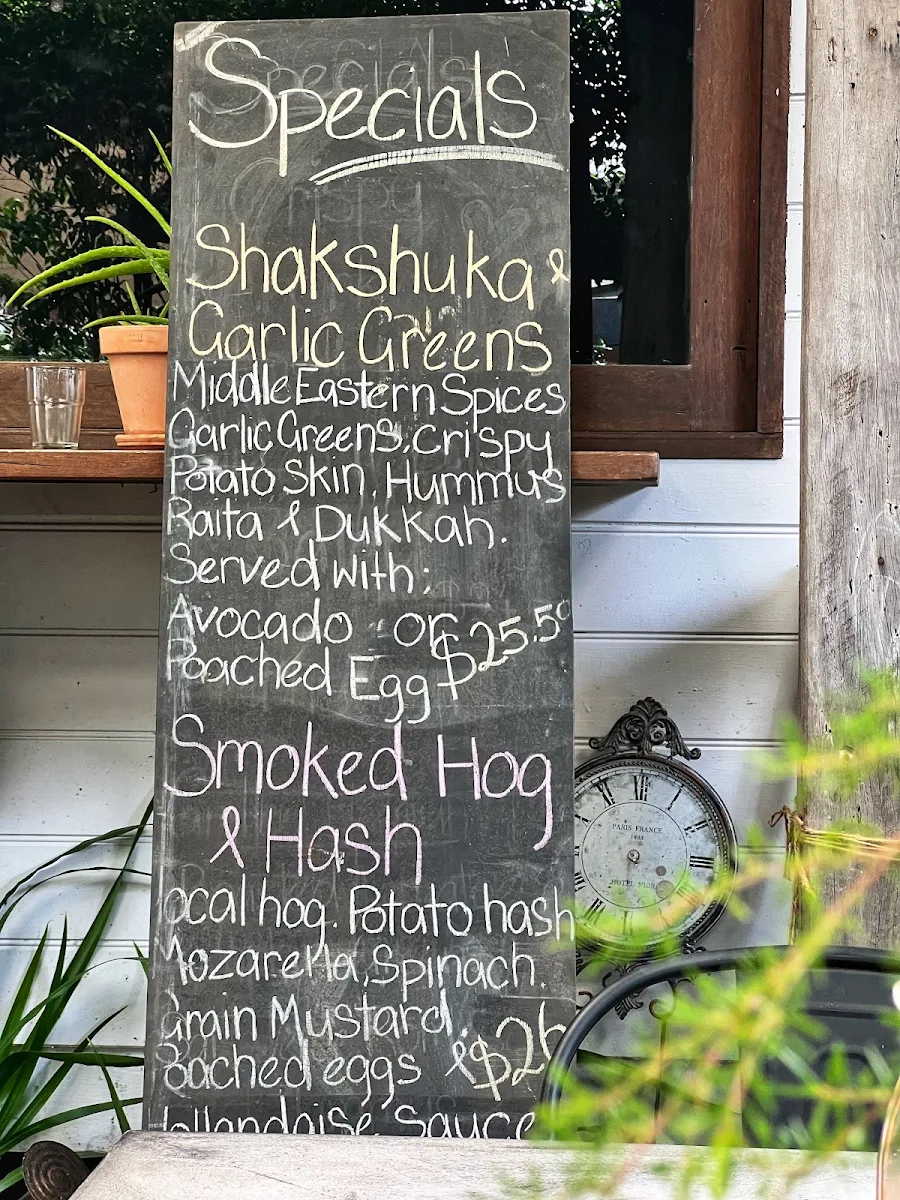 Specials
Shakshuka &
Garlic Greens
Middle Eastern Spices
Garlic Greens, Crispy
Potato Skin, Hummus
Raita & Dukkah.
Served with:
Avocado or
Poached Egg $25.50
Smoked Hog
& Hash
ocal hog. Potato hash
Mozarella, Spinach.
Grain Mustard.
Poached eggs & $26
Hollandaise Sauce
PARIS FRANCE
HOTEL